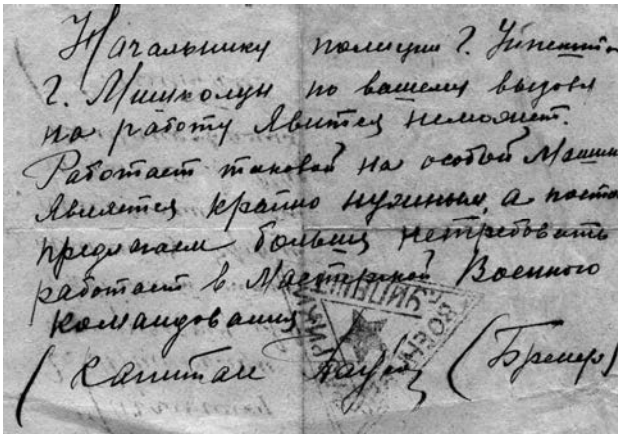 Начальнику полиции г. Уйпешта
г. Мишколцы по вашему вызову
на работу явится неможет.
Работает таковой на особой Машин
является крайно нужным, а поэто
предлагаем больше нетребовать
работает в Мастерской Военного
командования
(Капитан (Бренер)
ВОЕН